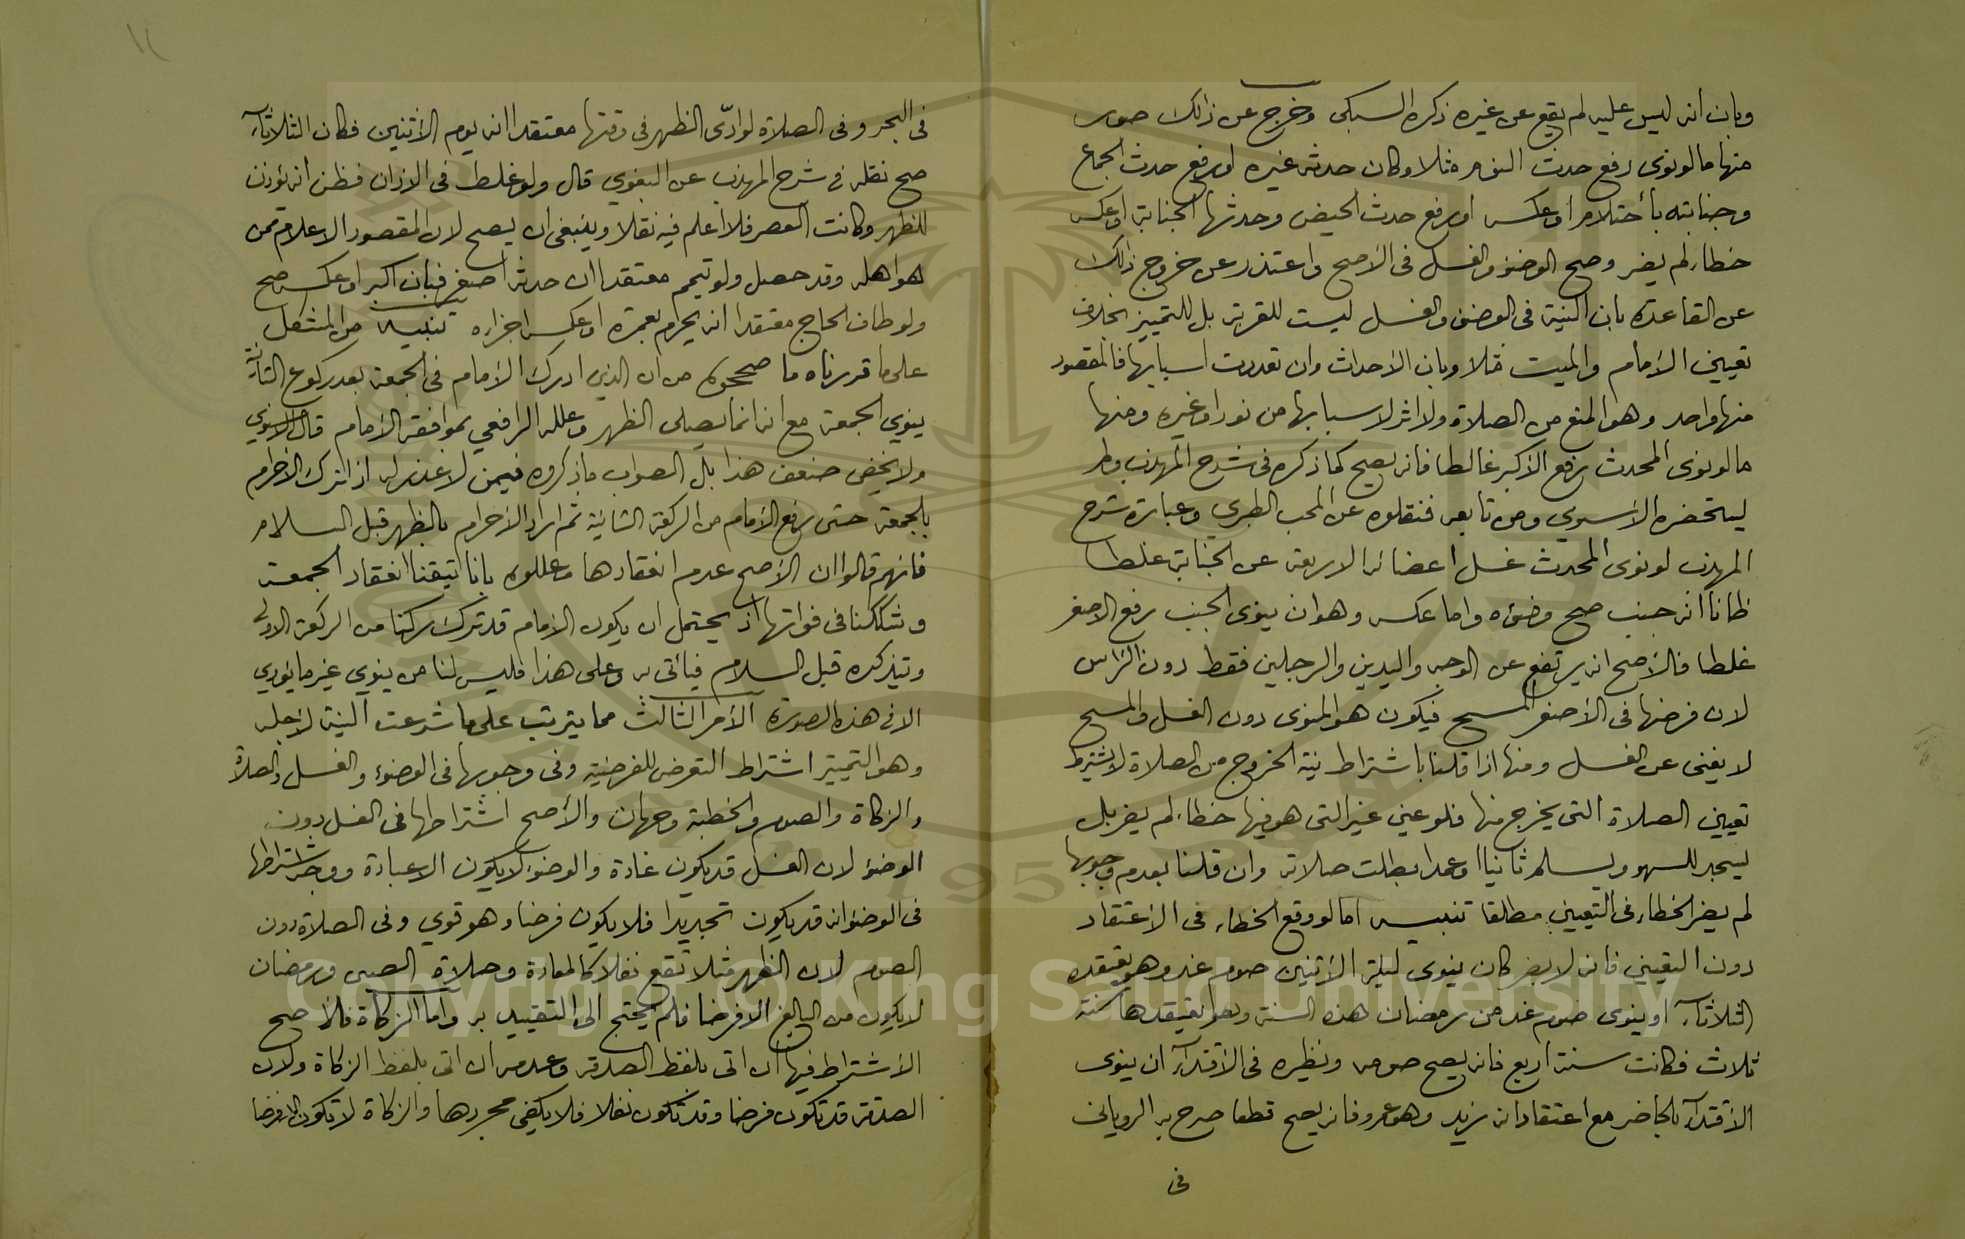 وبان أنه ليس عليه لم يقع عن غيره ذكره السبكي وخرج عن ذالك صور
منها ما لو نوى رفع حدث النوم مثلا وكان حدثه غيره او رفع حدث الجماع
وجنابته بأحتلام او عكسه او رفع حدث الحيض وحدثها الجنابة او عكسه
خطاء لم يضر وصح الوضؤ والغسل في الأصح واعتذر عن خروج ذالك
عن القاعدة بان النية في الوضؤ والغسل ليست للقربة بل للتمييز بخلاف
تعيين الأمام والميت مثلا وبان الأحداث وان تعددت اسبابها فالمقصود
منها واحد وهو المنع من الصلاة ولا اثر لاسبابها من نوم او غيره ومنها
ما لو نوى المحدث رفع الاكبر غالطا فانه يصح كما ذكره في شرح المهذب ولم
يستحضره الأسنوي ومن تابعه فنقلوه عن المحب الطبري وعبارة شرح
المهذب لو نوى المحدث غسل اعضائه الاربعة عن الجنابة غلطا
ظانا انه جنب صح وضؤه واما عكسه وهو ان ينوي الجنب رفع الاصغر
غلطا فالأصح انه يرتفع عن الوجه واليدين والرجلين فقط دون الرأس
لان فرضها في الأصغر المسح فيكون هو المنوى دون الغسل والمسح
لا يغني عن الغسل ومنها اذا قلنا باشتراط نية الخروج من الصلاة لا يشترط
تعيين الصلاة التي يخرج منها فلو عين غير التي هو فيها خطاء لم يضر بل
يسجد للسهو ويسلم ثانيا او عمدا بطلت صلاته وان قلنا بعدم وجوبها
لم يضر الخطاء في التعيين مطلقا تنبيه اما لو وقع الخطاء في الأعتقاد
دون التعيين فانه لا يضر كان ينوى ليلة الأثنين صوم غد وهو يعتقده
الثلاثآء او ينوى صوم غد من رمضان هذه السنة وهو يعتقدها سنة
ثلاث فكانت سنة اربع فانه يصح صومه ونظيره في الأقتدآء ان ينوى
الأقتدآء بالحاضر مع اعتقاد انه زيد وهو عمرو فانه يصح قطعا صرح به الروياني
في
في البحر وفي الصلاة لو ادّى الظهر في وقتها معتقدا انه يوم الأثنين فكان الثلاثآء
صح نقله في شرح المهذب عن البغوي قال ولو غلط في الاذان فظن انه يؤذن
للظهر وكانت العصر فلا اعلم فيه نقلا وينبغي ان يصح لان المقصود الاعلام ممن
هو اهله وقد حصل ولو تيمم معتقدا ان حدثه اصغر فبان اكبر او عكسه صح
ولو طاف الحاج معتقدا انه يحرم بعمرة او عكسه اجزاه تنبيه من المشكل
على ما قررناه ما صححوه من ان الذي ادرك الأمام في الجمعة بعد ركوع الثانية
ينوي الجمعة مع انه انما يصلى الظهر وعلله الرافعي بموافقة الأمام قال الاسنوي
ولا يخفى ضعف هذا بل الصواب ما ذكروه فيمن لا عذر له اذا ترك الأحرام
بالجمعة حتى رفع الأمام من الركعة الثانية ثم اراد الأحرام بالظهر قبل السلام
فانهم قالوا ان الأصح عدم انعقادها وعللوه بانا تيقنا انعقاد الجمعة
وشككنا في فواتها اذ يحتمل ان يكون الأمام قد ترك ركنا من الركعة الاولى
ويتذكره قبل السلام فيأتى به وعلى هذا فليس لنا من ينوي غير ما يؤدي
الا في هذه الصورة الأمر الثالث مما يترتب على ما شرعت النية لأجله
وهو التمييز اشتراط التعرض للفرضية وفي وجوبها في الوضوء والغسل والصلاة
والزكاة والصوم والخطبة وجهان والأصح اشتراطها في الغسل دون
الوضؤ لان الغسل قد يكون عادة والوضؤ لا يكون الا عبادة ووجه اشتراطها
في الوضؤ انه قد يكون تجديدا فلا يكون فرضا وهو قوي وفي الصلاة دون
الصوم لان الظهر مثلا تقع نفلا كالمعادة وصلاة الصبى ورمضان
لا يكون من البالغ الا فرضا فلم يحتج الى التقييد به واما الزكاة فالأصح
الأشتراط فيها ان اتى بلفظ الصدقة وعدمه ان اتى بلفظ الزكاة ولان
الصدقة قد تكون فرضا وقد تكون نفلا فلا يكفى مجردها والزكاة لا تكون الا فرضا
Copyright © King Saud University